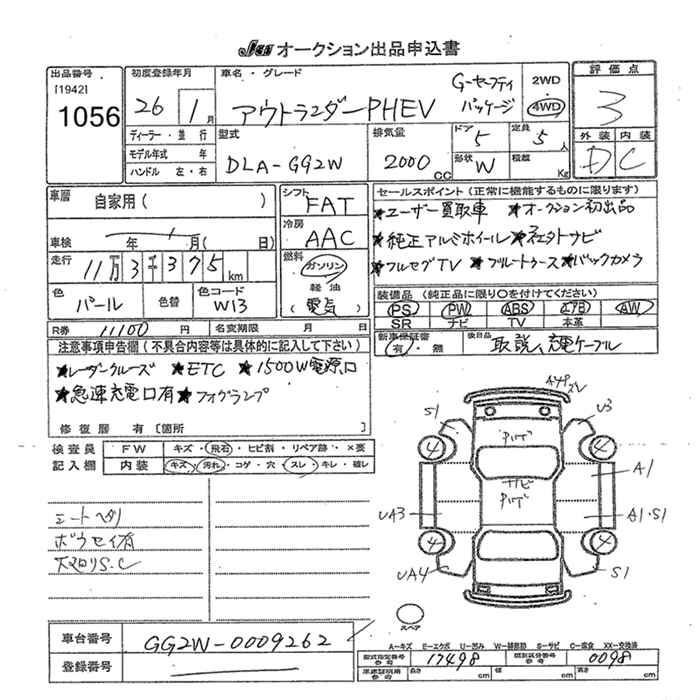 Jaa オークション出品申込書
出品番号
[1942]
1056
初度登録年月
26 1月
ディーラー・並 行
モデル年式 年
ハンドル 左・右
車名・グレード
アウトランダーPHEV
G-セーフティ
パッケージ
2WD
4WD
評価点
3
外装 内装
D C
型式
DLA-GG2W
排気量
2000 CC
ドア 5
定員 5 人
形状 W
積載 Kg
車歴
自家用( )
車検 年 月( 日)
走行
11万3千375km
色
パール
色替
色コード
W13
シフト
FAT
冷房
AAC
燃料
ガソリン
軽油
(電気)
セールスポイント(正常に機能するものに限ります)
★ユーザー買取車 ★オークション初出品
★純正アルミホイール ★社外ナビ
★フルセグTV ★ブルートゥース ★バックカメラ
装備品(純正品に限り○を付けてください)
PS PW ABS エアB AW
SR ナビ TV 本革
R券 11100 円 名変期限 月 日
新車保証書
有・無
後日品 取説、充電ケーブル
注意事項申告欄(不具合内容等は具体的に記入して下さい)
★レーダークルーズ ★ETC ★1500W電源口
★急速充電口有 ★フォグランプ
修復歴 有[箇所 ]
検査員
記入欄
FW キズ・飛石・ヒビ割・リペア跡・×要
内装 キズ・汚れ・コゲ・穴・スレ・キレ・破レ
シートヘタリ
S1
U3
A1
UA3
A1・S1
UA4
S1
4
4
4
4
スペア
車台番号 GG2W-0009262
登録番号
A-キズ E-エクボ U-凹み W-補修跡 S-サビ C-腐食 XX-交換済
型式指定番号
参考
17498
類別区分番号
参考
0098
車庫証明用
参考
長さ cm 幅 cm 高さ cm